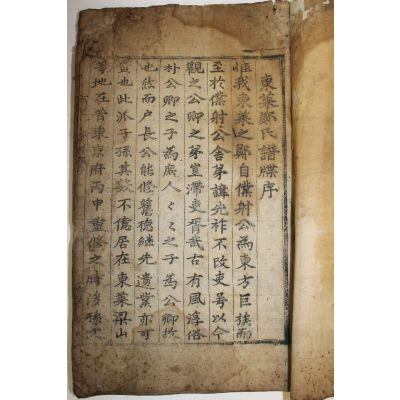 東萊鄭氏譜牒序
惟我東萊之鄭自僕射公爲東方巨族而
至於僕射公舍弟諱先祚不改吏号以今
觀之公卿之弟豈滯吏胥哉古有風淳俗
朴公卿之子爲庶人〻〻之子爲公卿故
也然而户長公能修舊德継先遺業亦可
盖也此派子孫其數不億居在東萊梁山
等地在昔東京府丙申重修之時後孫